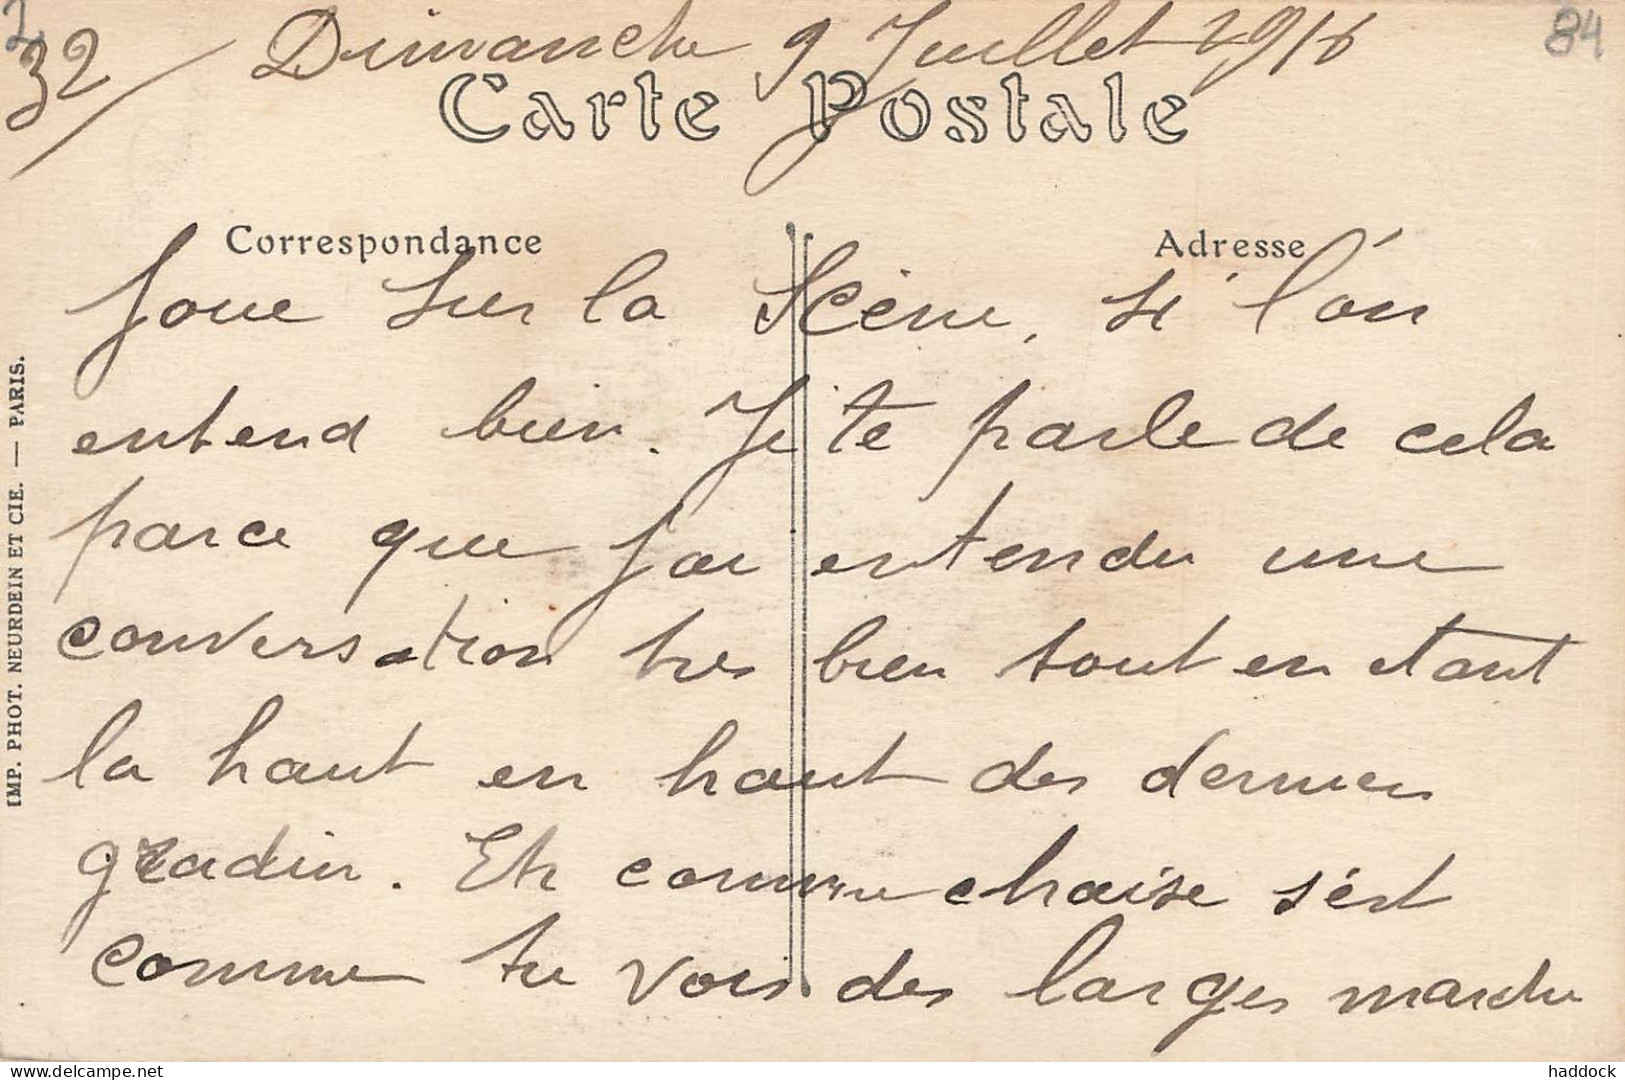 2
32/ Dimanche 9 Juillet 1916
84
Carte Postale
Correspondance
Adresse
Joue sur la Scène, si l'on
entend bien. Je te parle de cela
parce que j'ai entendu une
conversation tres bien tout en etant
la haut en haut des derniers
gradin. Et comme chaise s'est
comme tu vois des larges marche
IMP. PHOT. NEURDEIN ET CIE. — PARIS.
delcampe.net
haddock